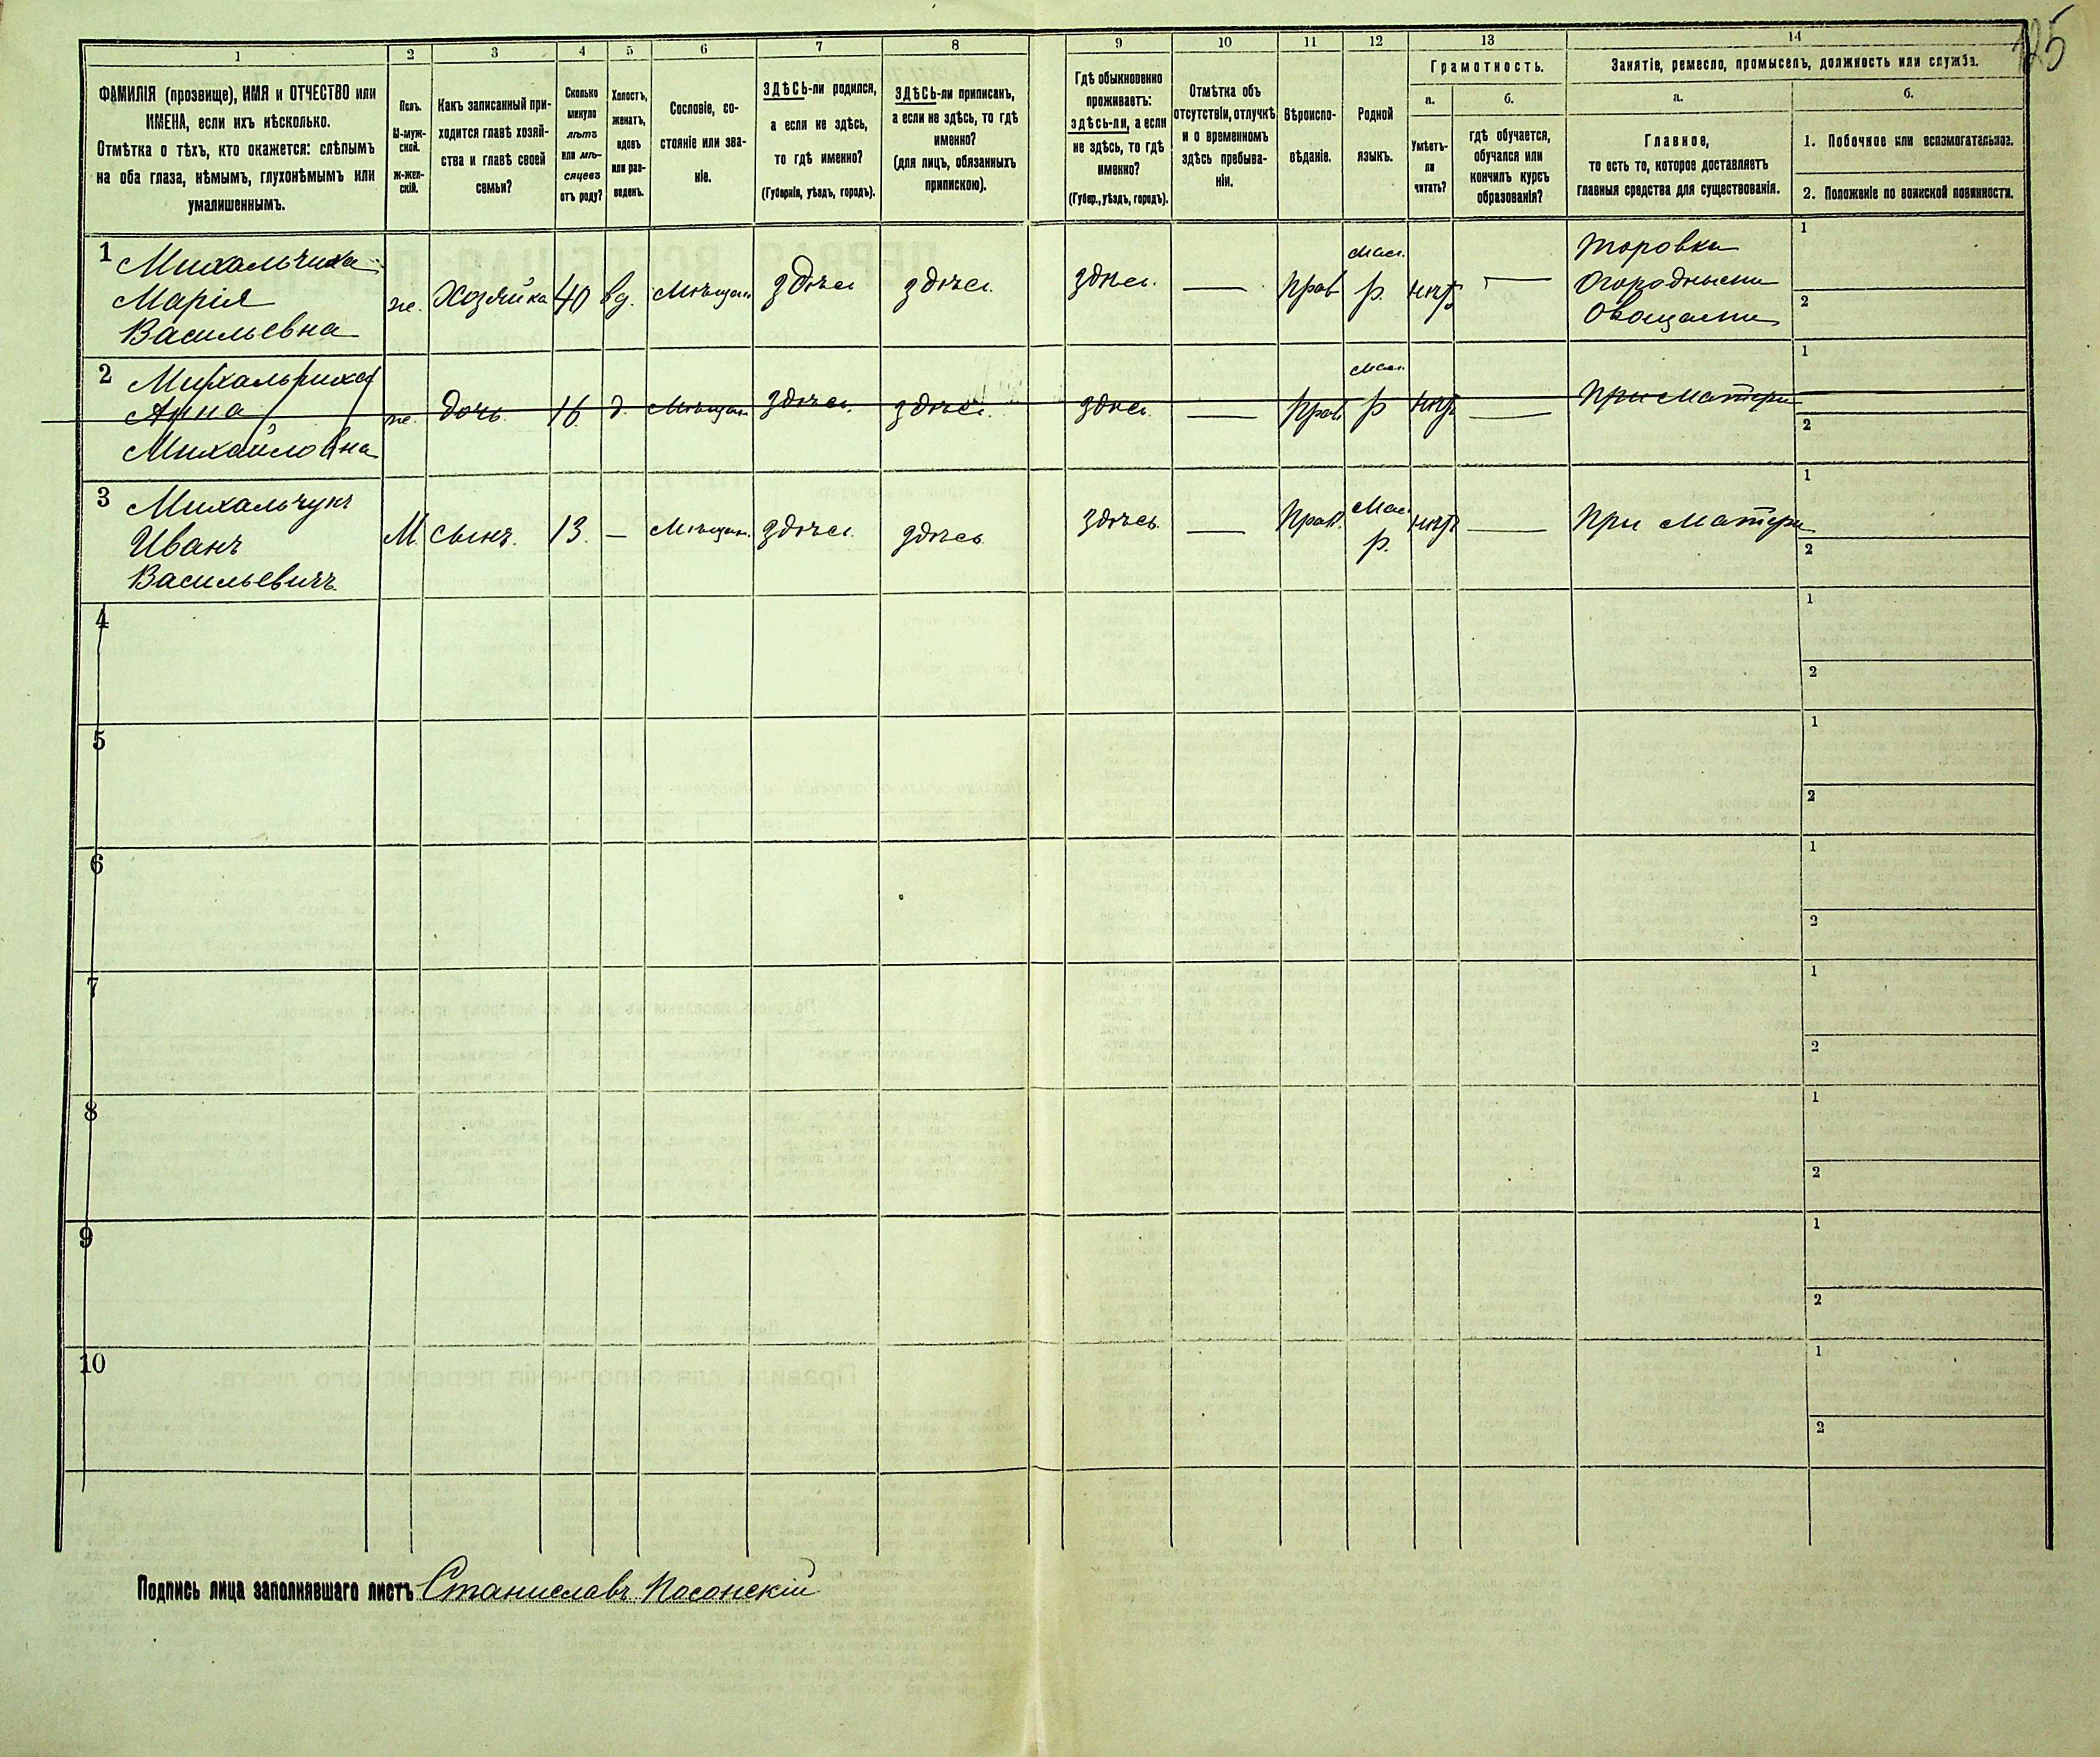 125
1 2 3 4 5 6 7 8 9 10 11 12 13 14
ФАМИЛІЯ (прозвище), ИМЯ и ОТЧЕСТВО или
ИМЕНА, если ихъ нѣсколько.
Отмѣтка о тѣхъ, кто окажется: слѣпымъ
на оба глаза, нѣмымъ, глухонѣмымъ или
умалишеннымъ.
Полъ.
М-муж-
ской.
Ж-жен-
скій.
Какъ записанный при-
ходится главѣ хозяй-
ства и главѣ своей
семьи?
Сколько
минуло
лѣтъ
или мѣ-
сяцевъ
отъ роду?
Холостъ,
женатъ,
вдовъ
или раз-
веденъ.
Сословіе, со-
стояніе или зва-
ніе.
ЗДѢСЬ-ли родился,
а если не здѣсь,
то гдѣ именно?
(Губернія, уѣздъ, городъ).
ЗДѢСЬ-ли приписанъ,
а если не здѣсь, то гдѣ
именно?
(для лицъ, обязанныхъ
припискою).
Гдѣ обыкновенно
проживаетъ:
здѣсь-ли, а если
не здѣсь, то гдѣ
именно?
(Губер., уѣздъ, городъ).
Отмѣтка объ
отсутствіи, отлучкѣ
и о временномъ
здѣсь пребыва-
ніи.
Вѣроиспо-
вѣданіе.
Родной
языкъ.
Грамотность.
а.
Умѣетъ-
ли
читать?
б.
гдѣ обучается,
обучался или
кончилъ курсъ
образованія?
Занятіе, ремесло, промыселъ, должность или служба.
а.
Главное,
то есть то, которое доставляетъ
главныя средства для существованія.
б.
1. Побочное или вспомогательное.
2. Положеніе по воинской повинности.
1 Михальчиха
Марія
Васильевна
же. Хозяйка 40 вд. Мѣщан здѣсь здѣсь. здѣсь. — Прав Мал. р. нѣтъ —
Торовка
Огородными
Овощами
1
2
2 Михальчиха
Анна
Михайловна
же. дочь 16 д. Мѣщан здѣсь. здѣсь. здѣсь. — Прав Мал. р нѣтъ — При Матери
1
2
3 Михальчукъ
Иванъ
Васильевичъ
М. сынъ. 13. — Мѣщан. здѣсь здѣсь здѣсь — Прав. Мал р. нѣтъ — При Матери
1
2
4
1
2
5
1
2
6
1
2
7
1
2
8
1
2
9
1
2
10
1
2
Подпись лица заполнявшаго листъ Станиславъ